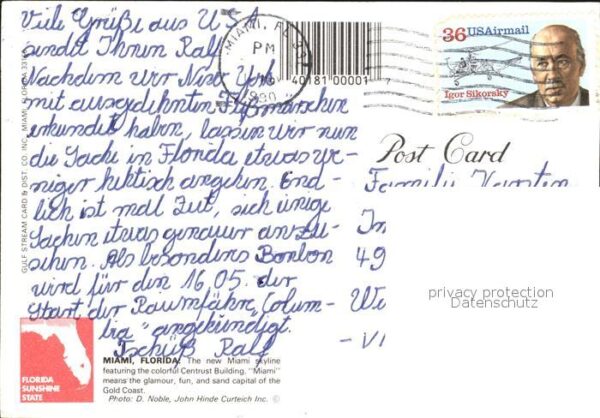 Viele Grüße aus USA
sendet Ihnen Ralf
Nachdem wir New York
mit ausgedehnten Fußmärschen
erkundet haben, lassen wir nun
die Sache in Florida etwas we-
niger hektisch angehen. End-
lich ist mal Zeit, sich einige
Sachen etwas genauer anzu-
sehen. Als besonderes Bonbon
wird für den 16.05. der
Start der Raumfähre „Colum-
bia" angekündigt.
Tschüß Ralf
MIAMI, FL 331
PM
16
1990
40181 00001 7
36 USAirmail
Igor Sikorsky
Post Card
Familie Karsten
In
49
We
- VI
privacy protection
Datenschutz
GULF STREAM CARD & DIST. CO. INC., MIAMI, FLORIDA
FLORIDA
SUNSHINE
STATE
MIAMI, FLORIDA: The new Miami skyline
featuring the colorful Centrust Building. "Miami"
means the glamour, fun, and sand capital of the
Gold Coast.
Photo: D. Noble, John Hinde Curteich Inc. ©